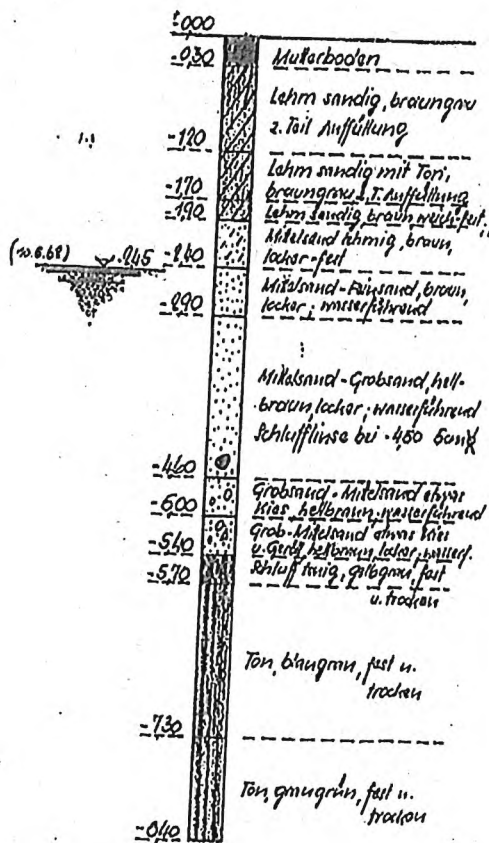 ± 000
- 0,30
Mutterboden
Lehm sandig, braungrau
z. Teil Auffüllung
- 1,20
Lehm sandig mit Ton,
- 1,70
braungrau z.T. Auffüllung
- 1,90
Lehm sandig, braun weich-fest,
Mittelsand lehmig, braun,
locker-fest
(10.6.68)
- 2,45
- 2,40
Mittelsand-Feinsand, braun,
locker; wasserführend
- 2,90
Mittelsand-Grobsand, hell-
braun, locker; wasserführend
Schlufflinse bei - 4,50 5cm
- 4,60
Grobsand-Mittelsand etwas
Kies, hellbraun, wasserführend
- 5,00
Grob-Mittelsand etwas Kies
u. Geröl, hellbraun, locker, wasserf.
- 5,40
Schluff tonig, gelbgrau, fest
- 5,70
u. trocken
Ton, blaugrau, fest u.
trocken
- 7,30
Ton, graugrün, fest u.
trocken